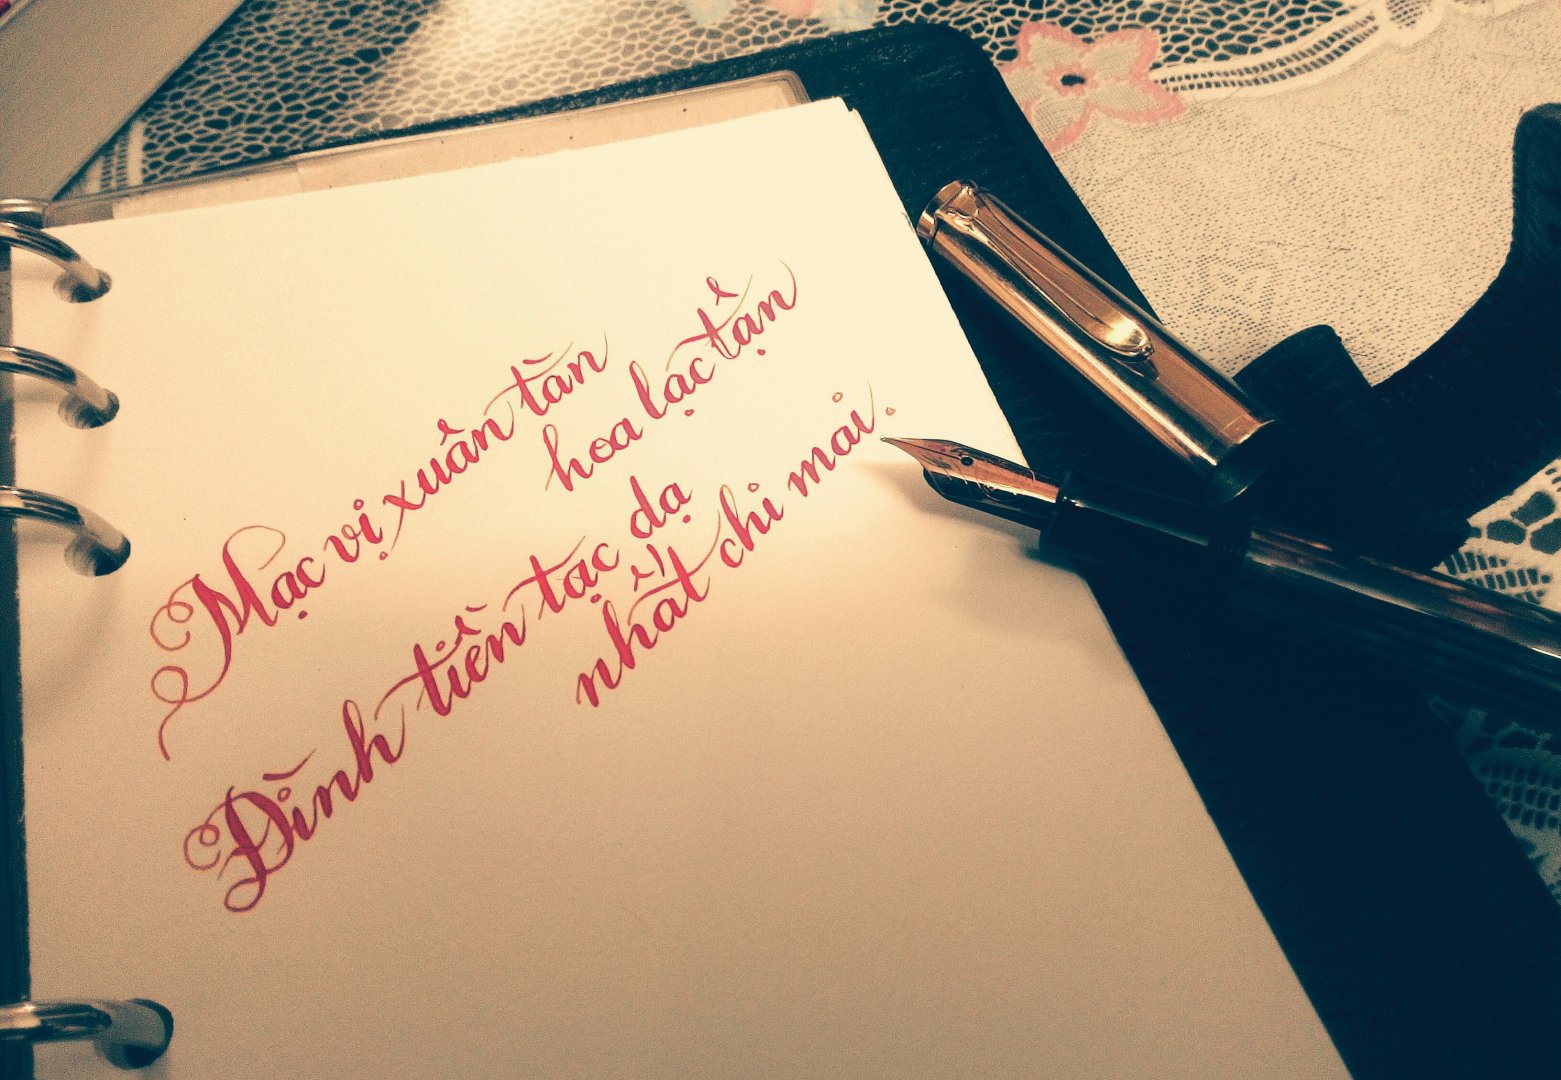 Mạc vị xuân tàn
hoa lạc tận
Đình tiền tạc dạ
nhất chi mai.